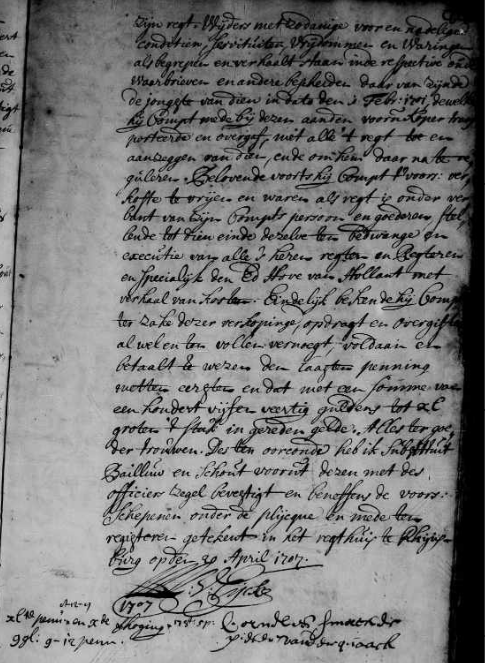 zijn regt. Wijders met zodanige voor en nadelige
condetien, servituiten vrijdommen en waringen
als begrepen en verhaalt staan in de respective oude
waarbrieven en andere bescheiden daar van zijnde
de jongste van dien in dato den Febr: 1701, dewelke
hij Compt mede bij dezen aanden voorn. koper trans
porteerde en overgaf, met alle 't regt toe en
aanzeggen van dien, ende om hem daar na te re
guleren. Belovende voorts hij Compt 't voors: ver
kofte te vrijen en waren als regt is onder ver
bant van zijn Compts persoon en goederen stel
lende tot dien einde dezelve ten bedwange en
executie van alle 's heren regten en Regteren
en specialijk den Ed Hove van Hollant met
verhaal van kosten: Eindelijk bekende hij Compt
ter zake dezer verkopinge, opdragt en overgifte
al wel en ten vollen vernoegt, voldaan en
betaalt te wezen den laasten penning
metten eersten en dat met een somme van
een hondert vijf en veertig guldens tot xl
groten 't stuk in gereden gelde. Alles ter goe
der trouwen. Des ten oorconde heb ik Substituit
Bailluw en Schout vooruit dezen met des
officiers zegel bevestigt en beneffens de voors:
Schepenen onder de plijcque en mede ten
registeren getekent in het regthuis te
burg op den 30 April 1707.
1707
xl penn en x
9 gl: 9-12 penn.